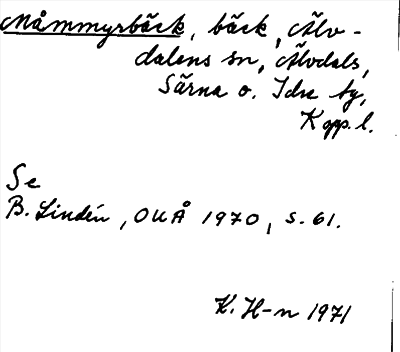 Måmmyrbäck, bäck, Älv-
dalens sn, Älvdals,
Särna o. Idre tg,
Kopp. l.
Se
B. Lindén, OUÅ 1970, s. 61.
K. H-n 1971